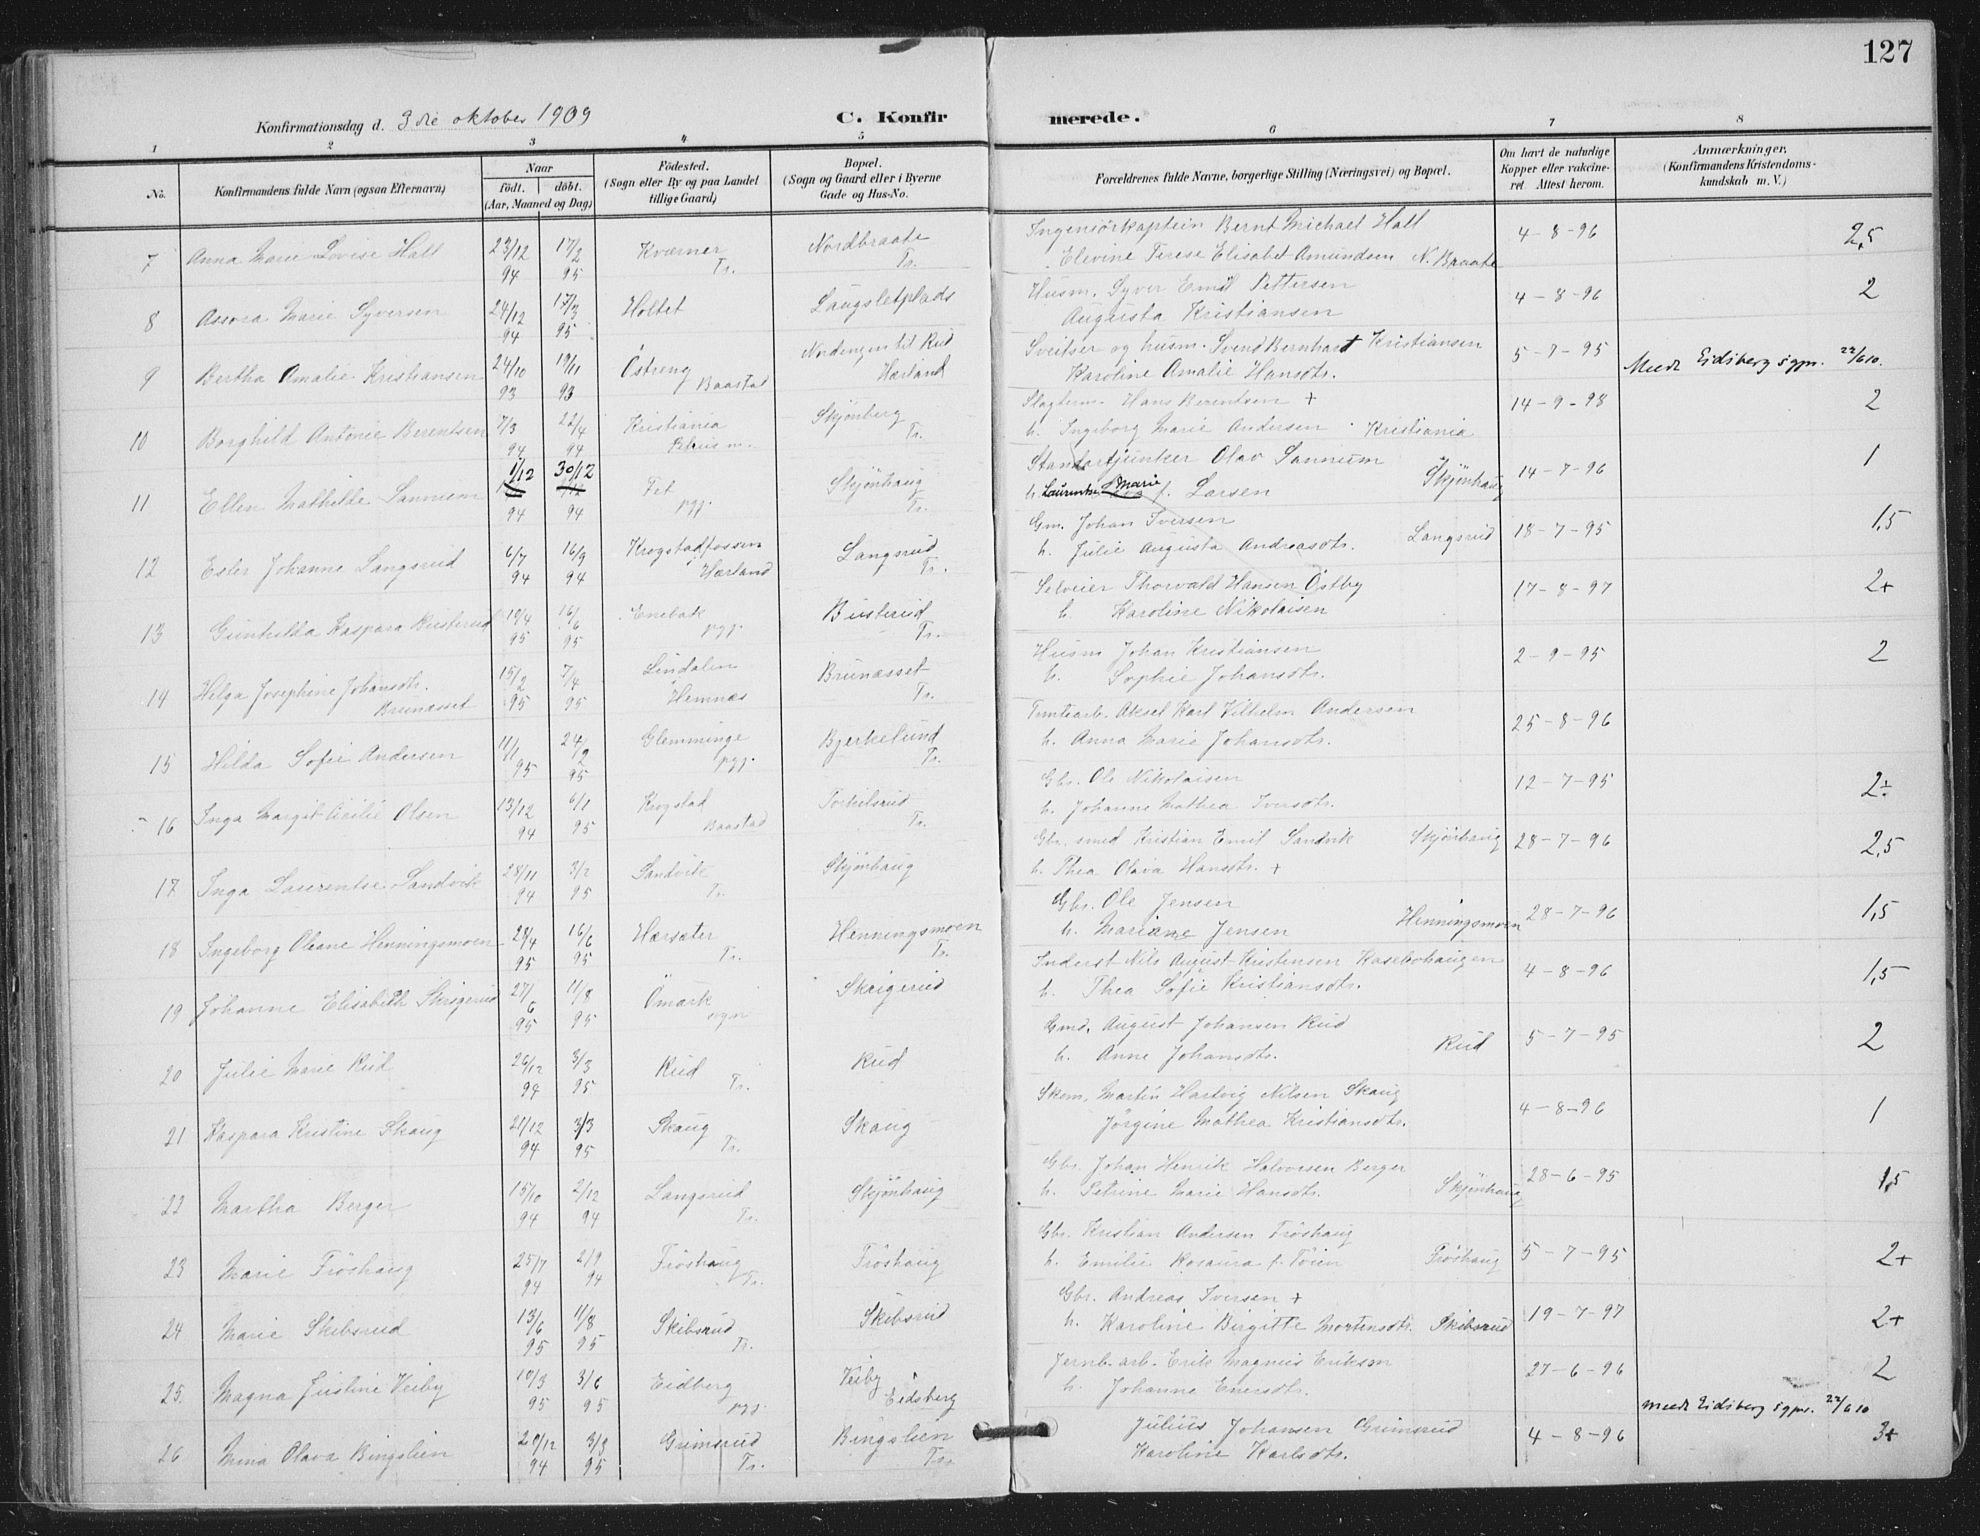 127
Konfirmationsdag d. 3die oktober 1909
C. Konfirmerede.
1 2 3 4 5 6 7 8
No.
Konfirmandens fulde Navn (ogsaa Efternavn)
Naar
födt. döbt.
(Aar, Maaned og Dag)
Födested.
(Sogn eller By og paa Landet
tillige Gaard)
Bopæl.
(Sogn og Gaard eller i Byerne
Gade og Hus-No.
Forældrenes fulde Navne, borgerlige Stilling (Næringsvei) og Bopæl.
Om havt de naturlige
Kopper eller vakcine-
ret Attest herom.
Anmærkninger.
(Konfirmandens Kristendoms-
kundskab m. V.)
7 Anna Marie Lovise Hall 23/12 94 17/2 95 Kværner Tr. Nordbraate Tr. Ingeniörkaptein Bernt Michael Hall 4-8-96 2,5
Elevine Terese Elisabet Amundsen N. Braate
8 Assora Marie Syversen 24/12 94 17/3 95 Holtet Laugsletplads Husm. Syver Emil Pettersen 4-8-96 2
Augusta Kristiansen
9 Bertha Amalie Kristiansen 24/10 93 19/11 93 Östreng Baastad Nordengen til Rud Hærland Sveitser og husm. Svend Bernhart Kristiansen 5-7-95 Meedt Eidsberg sgpr. 22/6 10.
Karoline Amalie Hansdtr.
10 Borghild Antonie Berentsen 7/3 94 22/4 94 Kristiania Skjönberg Tr. Slagterm. Hans Berentsen + 14-9-98 2
h. Ingeborg Marie Andersen Kristiania
11 Ellen Mathilde Sannum 1/12 94 30/12 94 Fet pgj. Skjönhaug Tr. Standartjunker Olav Sannum Skjönhaug 14-7-96 1
h. Laurentse Marie f. Larsen
12 Ester Johanne Langsrud 6/7 94 16/9 94 Krogstadfossen Hærland Langsrud Tr. Gm. Johan Iversen Langsrud 18-7-95 1,5
h. Julie Augusta Andreasdtr.
13 Gunhilda Kaspara Busterud 19/4 95 16/6 95 Enebak pgj. Busterud Tr. Selveier Thorvald Hansen Östby 17-8-97 2+
h. Karoline Nikolaisen
14 Helga Josephine Johansdtr. Brunæsset 15/2 95 7/4 95 Lindalen Hemnæs Brunæsset Tr. Husm Johan Kristiansen 2-9-95 2
h. Sophie Johansdtr.
15 Hilda Sofie Andersen 11/1 95 24/2 95 Glemminge pgj. Bjerkelund Tr. Tomtearb. Aksel Karl Vilhelm Andersen 25-8-96
h. Anna Marie Johansdtr.
16 Inga Margit Cecilie Olsen 13/12 94 6/1 95 Krogstad Baastad Torkilsrud Tr. Gbr. Ole Nikolaisen 12-7-95 2÷
h. Johanne Mathea Iversdtr.
17 Inga Laurentse Sandvik 28/11 94 3/2 95 Sandvik Tr. Skjönhaug Gbr. smed Kristian Emil Sandvik Skjönhaug 28-7-96 2,5
h. Thea Olava Hansdtr. +
18 Ingeborg Oleane Henningsmoen 28/4 95 16/6 95 Hærsæter Tr. Henningsmoen Tr. Gbr. Ole Jensen Henningsmoen 28-7-96 1,5
h. Mariane Jensen
19 Johanne Elisabeth Skrigerud 27/6 95 11/8 95 Ömark sogn Skrigerud Inderst Nils August Kristensen Kasebohaugen 4-8-96 1,5
h. Thea Sofie Kristiansdtr.
20 Julie Marie Rud 26/12 94 3/3 95 Rud Tr. Rud Gmd. August Johansen Rud Rud 5-7-95 2
h. Anne Johansdtr.
21 Kaspara Kristine Skaug 21/12 94 3/3 95 Skaug Tr. Skaug Skom. Martin Hartvig Nilsen Skaug 4-8-96 1
Jörgine Mathea Kristiansdtr.
22 Martha Berger 15/10 94 2/12 94 Langsrud Tr. Skjönhaug Gbr. Johan Henrik Halvorsen Berger 28-6-95 1,5
h. Petrine Marie Hansdtr. Skjönhaug
23 Marie Fröshaug 25/7 94 2/9 94 Fröshaug Tr. Fröshaug Gbr. Kristian Andersen Fröshaug
h. Emilie Rosaura f. Töien Fröshaug 5-7-95 2+
24 Marie Skibsrud 13/6 95 11/8 95 Skibsrud Tr. Skibsrud Gbr. Andreas Iversen +
h. Karoline Birgitte Mortensdtr. Skibsrud 19-7-97 2+
25. Magna Justine Veiby 10/3 95 3/6 95 Eidberg pgj. Veiby Eidsberg Jernb. arb. Erik Magnus Eriksen 27-6-96 2
h. Johanne Enersdtr. Meedt Eidsberg sgpr. 22/6 10
26 Mina Olava Bingslien 20/12 94 3/3 95 Grimsrud Tr. Bingslien Tr. Julius Johansen Grimsrud 4-8-96 3+
Karoline Karlsdtr.